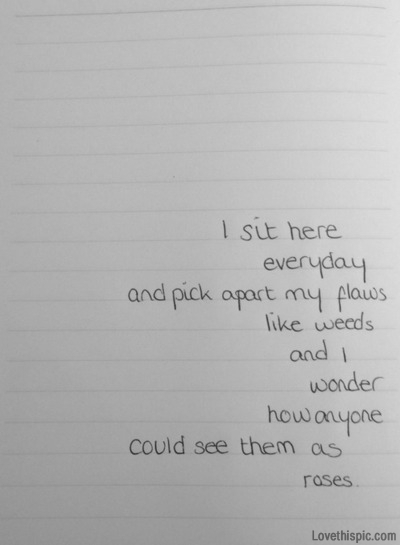 I sit here
everyday
and pick apart my flaws
like weeds
and I
wonder
how anyone
could see them as
roses.
Lovethispic.com